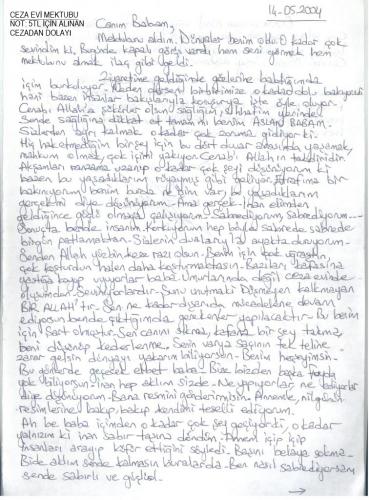 CEZA EVİ MEKTUBU
NOT: 5TL İÇİN ALINAN
CEZADAN DOLAYI
14.05.2004
Canım Babam,
Mektubunu aldım. Dünyalar benim oldu. O kadar çok
sevindim ki. Bugünde kapalı görüş vardı, hem seni görmek hem
mektubunu almak ilaç gibi geldi.
Ziyaretime geldiğinde gözlerine baktığımda
içim burkuluyor. Neden dersen birbirimize o kadar dolu bakıyoruz
hani bazen insanlar bakışlarıyla konuşurya işte öyle oluyor.
Cenab-ı Allah'a şükürler olsun sağlığım, sıhhatim yerinde
Sende sağlığına dikkat et tamam mı benim ASLAN BABAM.
Sizlerden ayrı kalmak o kadar çok zoruma gidiyor ki.
Hiç haketmediğim birşey için bu dört duvar arasında yaşamak,
mahkum olmak, çok içimi yakıyor. Cenab-ı Allah'ın takdiridir.
Akşamları ranzama uzanıp o kadar çok şey düşünüyorum ki
bazen bu yaşadıklarım rüyaymış gibi geliyor. Etrafıma bir
bakınıyorum benim burda ne işim var, bu yaşadıklarım
gerçekmi diye düşünüyorum. Ama gerçek. İnan elimden
geldiğince güçlü olmaya çalışıyorum. Sabrediyorum, sabrediyorum...
Sonuçta bende insanım. Korkuyorum hep böyle sabrede sabrede
birgün patlamaktan. Sizlerin dualarıyla ayakta duruyorum.
Senden Allah yüzbin kere razı olsun. Benim için çok uğraştın,
çok koşturdun halen daha koşturmaktasın. Bazıları kafasına
yastığa koyup uyuyorlar baba. Umurlarında değil ceza evinde
oluşumdan. Seviniyorlardır. Şunu unutmaki Düşmeyen kalkmayan
BİR ALLAH'tır. Sen ne kadar dışarıda mücadelene devam
ediyorsun bende çıktığımda gerekenler yapılacaktır. Bu benim
için şart olmuştur. Sen canını sıkma, kafana bir şey takma,
beni düşünüp kederlenme. Senin varya saçının tek teline
zarar gelsin dünyayı yakarım biliyorsun. Benim herşeyimsin.
Bu günlerde geçecek elbet baba. Bize bizden başka fayda
yok biliyorsun. inan hep aklım sizde. Ne yapıyorlar, ne ediyorlar
diye düşünüyorum. Bana resmini göndermişsin. Annemle,
resimlerine bakıp, bakıp kendimi teselli ediyorum.
Ah be baba içimden o kadar çok şey geçiyorki, o kadar
yalnızım ki inan sabır taşına döndüm. Annem için için
insanları arayıp küfür ettiğini söyledi. Başını belaya sokma.
Bide aklım sende kalmasın buralarda. Ben nasıl sabrediyorsam
sende sabırlı ve güçlü ol.